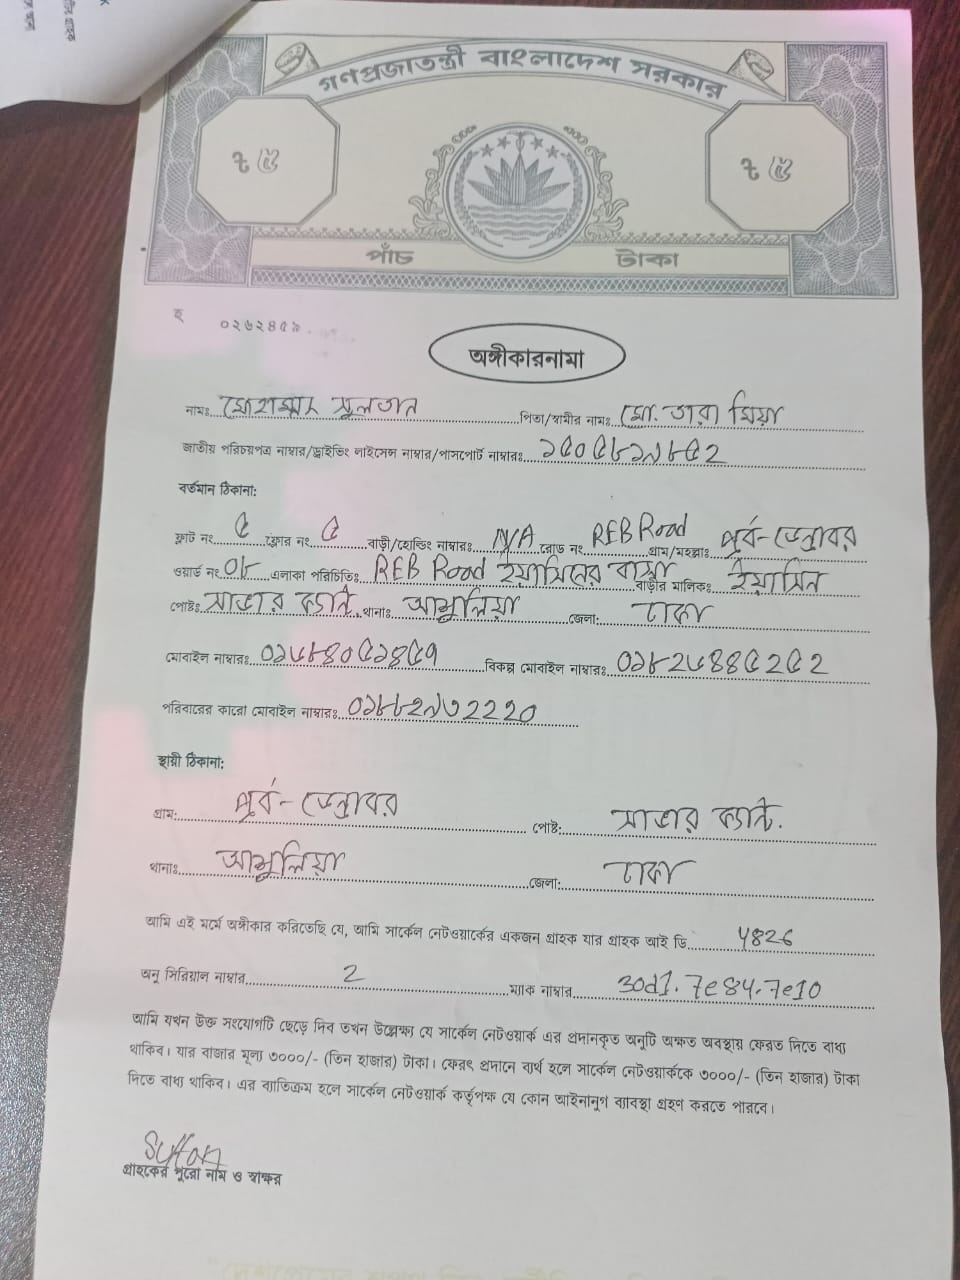 গণপ্রজাতন্ত্রী বাংলাদেশ সরকার
৳ ৫ ৳ ৫
পাঁচ টাকা
০২৬২৪৫৯
অঙ্গীকারনামা
নামঃ মোহাম্মদ সুলতান পিতা/স্বামীর নামঃ মো. তারা মিয়া
জাতীয় পরিচয়পত্র নাম্বার/ড্রাইভিং লাইসেন্স নাম্বার/পাসপোর্ট নাম্বারঃ
বর্তমান ঠিকানা:
ফ্লাট নং ৫ ফ্লোর নং ৫ বাড়ী/হোল্ডিং নাম্বারঃ N/A রোড নং REB Road গ্রাম/মহল্লাঃ পূর্ব-ডেন্ডাবর
ওয়ার্ড নং ০৮ এলাকা পরিচিতিঃ REB Road ইয়াসিনের বাসা বাড়ীর মালিকঃ ইয়াসিন
পোষ্টঃ সাভার ক্যান্ট. থানাঃ আশুলিয়া জেলা: ঢাকা
মোবাইল নাম্বারঃ বিকল্প মোবাইল নাম্বারঃ
পরিবারের কারো মোবাইল নাম্বারঃ
স্থায়ী ঠিকানা:
গ্রাম: পূর্ব-ডেন্ডাবর পোষ্ট: সাভার ক্যান্ট.
থানাঃ আশুলিয়া জেলা: ঢাকা
আমি এই মর্মে অঙ্গীকার করিতেছি যে, আমি সার্কেল নেটওয়ার্কের একজন গ্রাহক যার গ্রাহক আই ডি 4826
অনু সিরিয়াল নাম্বার 2 ম্যাক নাম্বার 30d1.7e84.7e10
আমি যখন উক্ত সংযোগটি ছেড়ে দিব তখন উল্লেক্ষ্য যে সার্কেল নেটওয়ার্ক এর প্রদানকৃত অনুটি অক্ষত অবস্থায় ফেরত দিতে বাধ্য
থাকিব। যার বাজার মূল্য ৩০০০/- (তিন হাজার) টাকা। ফেরৎ প্রদানে ব্যর্থ হলে সার্কেল নেটওয়ার্ককে ৩০০০/- (তিন হাজার) টাকা
দিতে বাধ্য থাকিব। এর ব্যাতিক্রম হলে সার্কেল নেটওয়ার্ক কর্তৃপক্ষ যে কোন আইনানুগ ব্যাবস্থা গ্রহণ করতে পারবে।
Sultan
গ্রাহকের পুরো নাম ও স্বাক্ষর